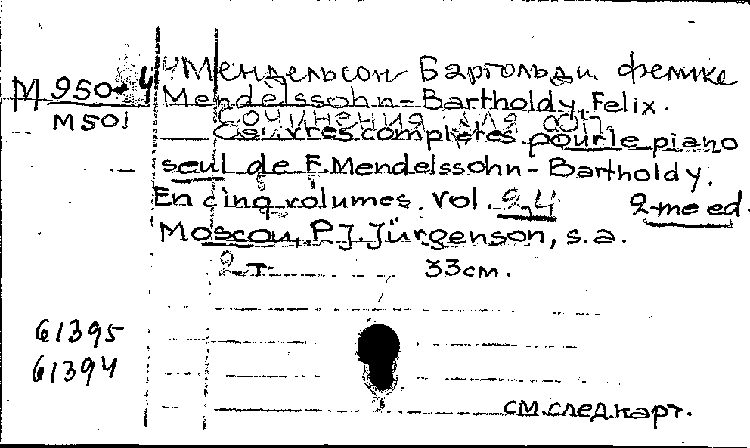 М 950-4
М501
Мендельсон Бартольди Феликс
Mendelssohn-Bartholdy, Felix.
Сочинения для ф.
Oeuvres completes pour le piano
seul de F. Mendelssohn-Bartholdy.
En cinq volumes. Vol. 2,4 2-me ed.
Moscou, P.J. Jürgenson, s.a.
2 т. 33 см.
61395
61394
см. след. карт.